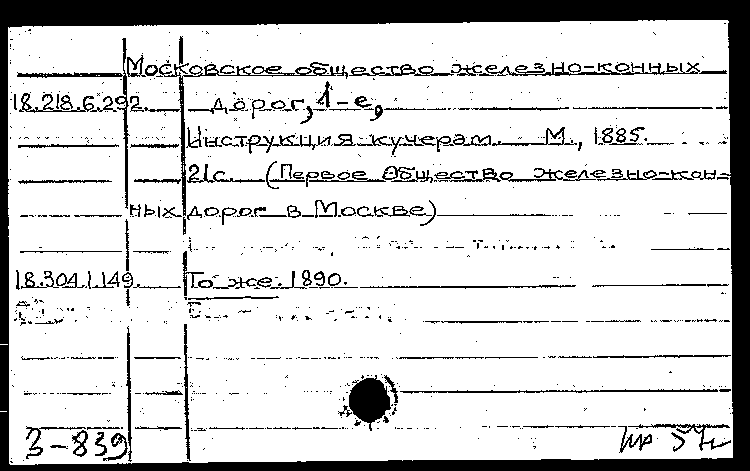 Московское общество железно-конных
18.218.6.292. дорог, 1-е,
Инструкция кучерам. М., 1885.
21с. (Первое Общество железно-кон-
ных дорог в Москве)
18.304.1.149. То же. 1890.
3-839